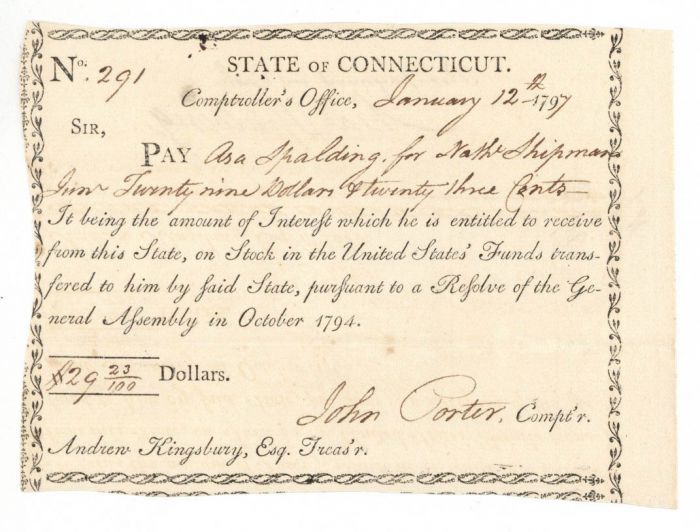 No. 291
STATE OF CONNECTICUT.
Comptroller's Office, January 12th 1797
SIR,
PAY Asa Spalding for Nathl Shipman
Junr Twenty nine Dollars & twenty three Cents
It being the amount of Interest which he is entitled to receive
from this State, on Stock in the United States' Funds trans-
fered to him by ſaid State, purſuant to a Reſolve of the Ge-
neral Aſſembly in October 1794.
$29 23/100 Dollars.
John Porter, Compt'r.
Andrew Kingsbury, Esq. Treas'r.